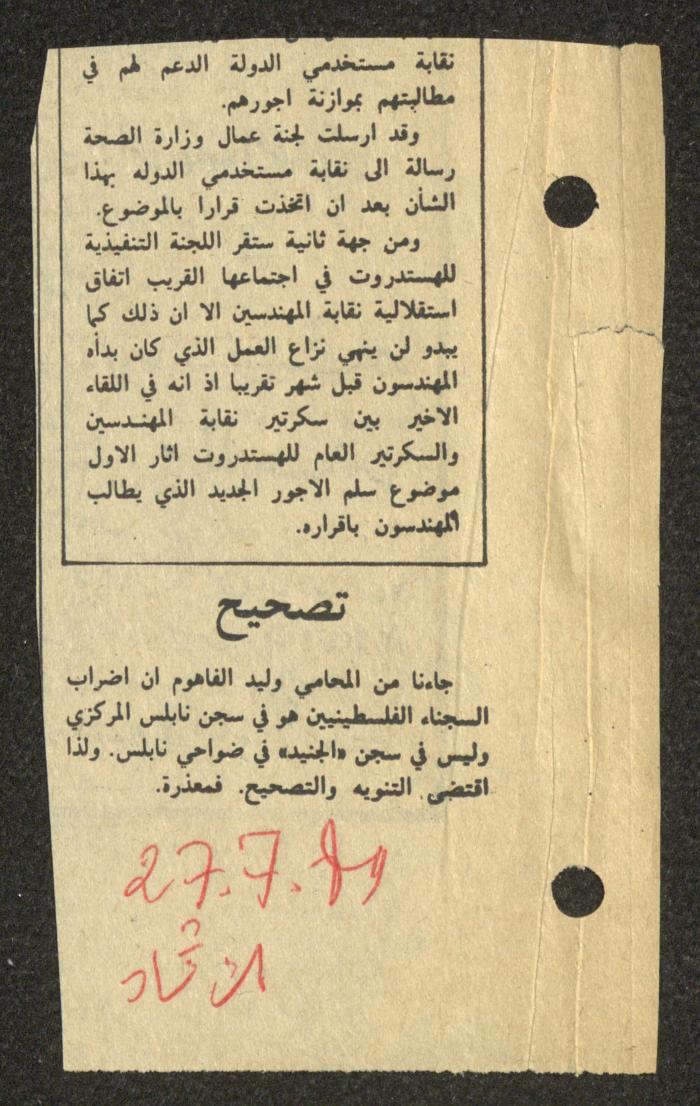 نقابة مستخدمي الدولة الدعم لهم في
مطالبتهم بموازنة اجورهم.
وقد ارسلت لجنة عمال وزارة الصحة
رسالة الى نقابة مستخدمي الدوله بهذا
الشأن بعد ان اتخذت قرارا بالموضوع.
ومن جهة ثانية ستقر اللجنة التنفيذية
للهستدروت في اجتماعها القريب اتفاق
استقلالية نقابة المهندسين الا ان ذلك كما
يبدو لن ينهي نزاع العمل الذي كان بدأه
المهندسون قبل شهر تقريبا اذ انه في اللقاء
الاخير بين سكرتير نقابة المهندسين
والسكرتير العام للهستدروت اثار الاول
موضوع سلم الاجور الجديد الذي يطالب
المهندسون باقراره.
تصحيح
جاءنا من المحامي وليد الفاهوم ان اضراب
السجناء الفلسطينيين هو في سجن نابلس المركزي
وليس في سجن «الجنيد» في ضواحي نابلس. ولذا
اقتضى التنويه والتصحيح. فمعذرة.
27.7.
الاتحاد